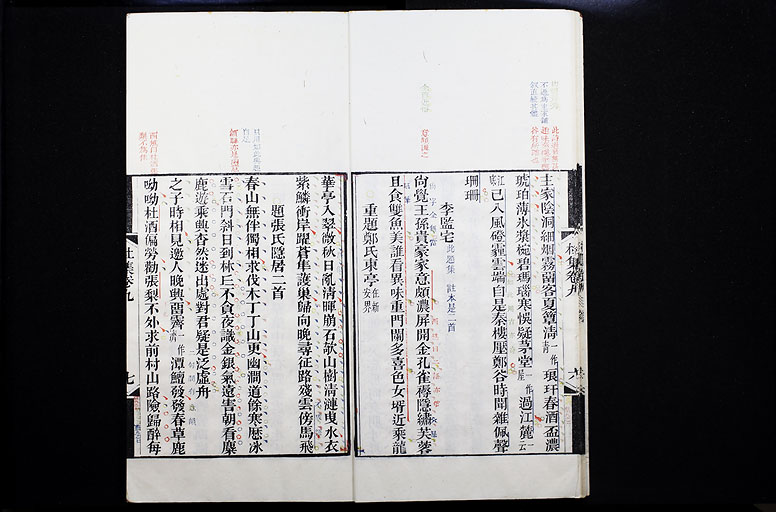 主家陰洞細煙霧留客夏簟清一作青琅玕春酒盃濃
琥珀薄冰漿椀碧瑪瑙寒悞疑茅堂一作屋過江麓一云
江底已入風磴霾雲端自是秦樓壓鄭谷時聞雜佩聲
珊珊
李監宅
尚覺王孫貴豪家意頗濃屏開金孔雀褥隱繡芙蓉
且食雙魚美誰看異味重門闌多喜色女壻近乘龍
重題鄭氏東亭在新安界
華亭入翠微秋日亂清暉崩石欹山樹清漣曳水衣
紫鱗衝岸躍蒼隼護巢歸向晚尋征路殘雲傍馬飛
題張氏隱居二首
春山無伴獨相求伐木丁丁山更幽澗道餘寒歷冰
雪石門斜日到林丘不貪夜識金銀氣遠害朝看麋
鹿遊乘興杳然迷出處對君疑是泛虛舟
之子時相見邀人晚興留霽一作濟潭鱣發發春草鹿
呦呦杜酒偏勞勸張梨不外求前村山路險歸醉每
杜集卷九
七